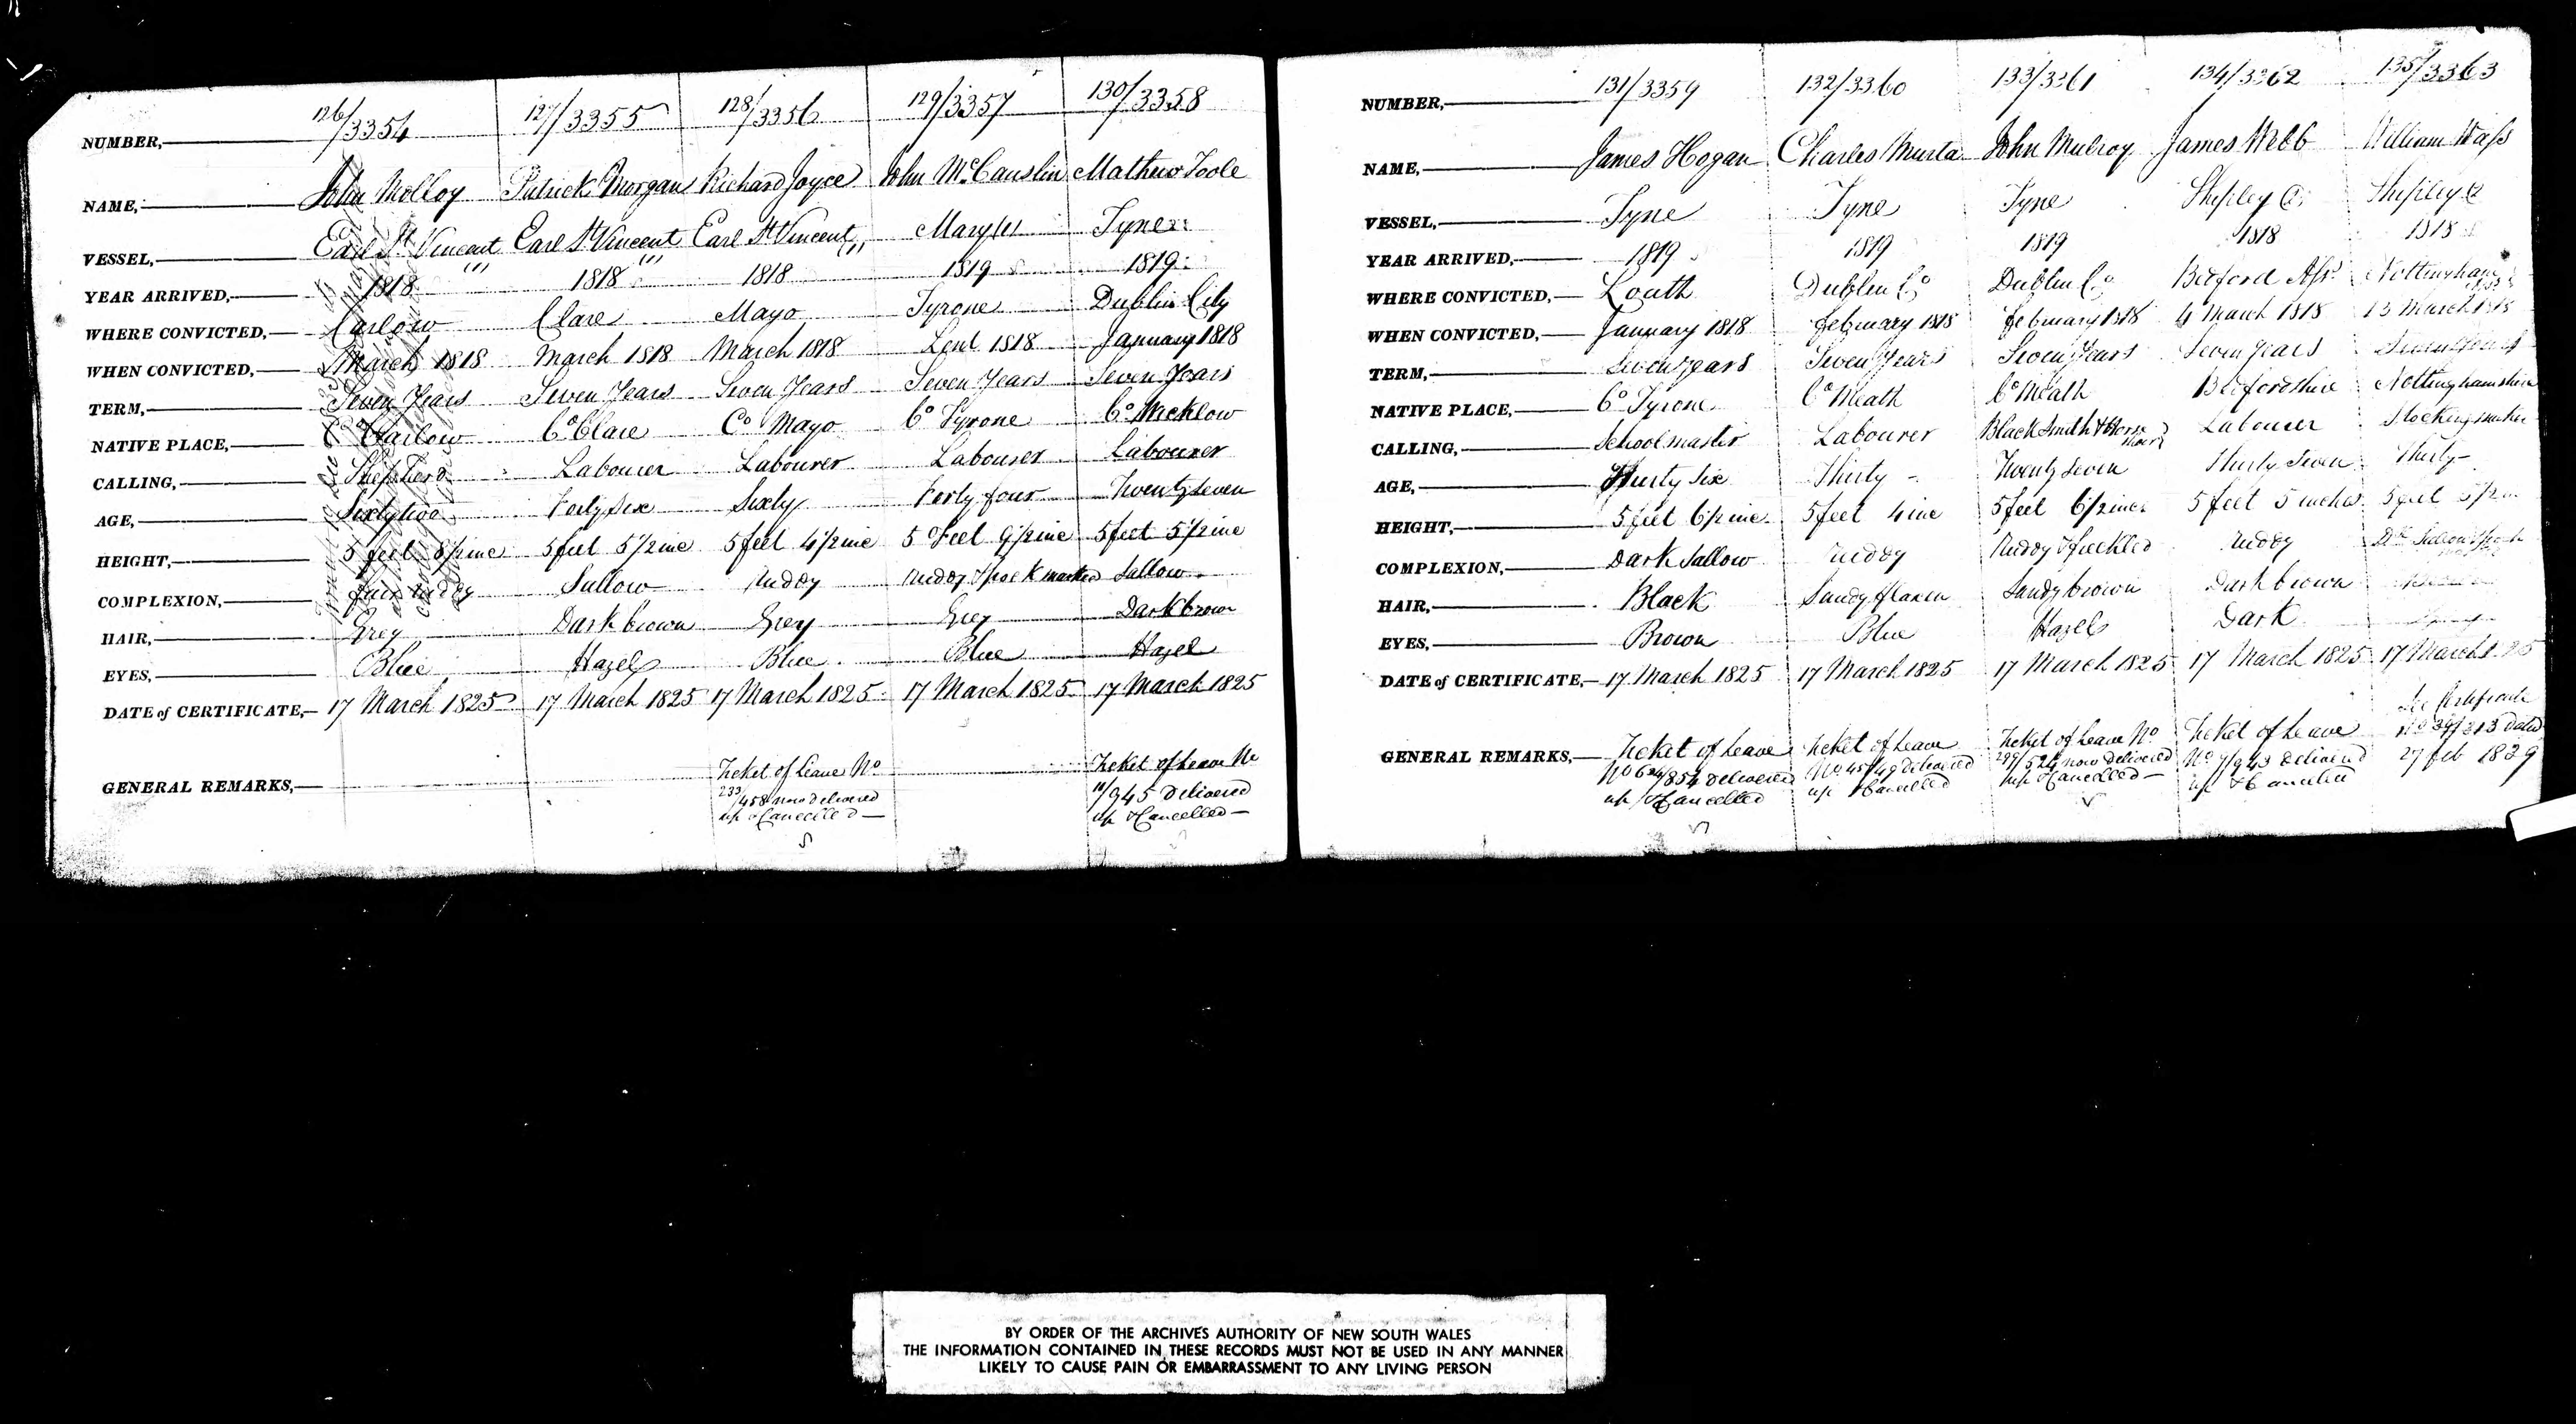 NUMBER, 126/3354 127/3355 128/3356 129/3357 130/3358
NAME, John Molloy Patrick Morgan Richard Joyce John McCauslin Mathew Toole
VESSEL, Earl St Vincent Earl St Vincent Earl St Vincent Mary Tyne
YEAR ARRIVED, 1818 1818 1818 1819 1819
WHERE CONVICTED, Carlow Clare Mayo Tyrone Dublin City
WHEN CONVICTED, March 1818 March 1818 March 1818 Lent 1818 January 1818
TERM, Seven Years Seven Years Seven Years Seven Years Seven Years
NATIVE PLACE, Co Carlow Co Clare Co Mayo Co Tyrone Co Wicklow
CALLING, Shepherd Labourer Labourer Labourer Labourer
AGE, Sixty two Forty six Sixty Forty four Twenty seven
HEIGHT, 5 feet 5 feet 5 1/2 inc 5 feet 4 1/2 inc 5 Feet 9 1/2 inc 5 feet 5 1/2 inc
COMPLEXION, fair ruddy Sallow Ruddy Ruddy & pock marked Sallow
HAIR, Grey Dark brown Grey Grey Dark brown
EYES, Blue Hazel Blue Blue Hazel
DATE of CERTIFICATE, 17 March 1825 17 March 1825 17 March 1825 17 March 1825 17 March 1825
GENERAL REMARKS, Ticket of Leave No Ticket of Leave No
233/458 now delivered 11/945 delivered
up & Cancelled — up & Cancelled —
NUMBER, 131/3359 132/3360 133/3361 134/3362 135/3363
NAME, James Hogan Charles Murta John Mulroy James Webb William Wass
VESSEL, Tyne Tyne Tyne Shipley Shipley
YEAR ARRIVED, 1819 1819 1819 1818 1818
WHERE CONVICTED, Louth Dublin Co Dublin Co Bedford Ass. Nottingham
WHEN CONVICTED, January 1818 February 1818 February 1818 4 March 1818 13 March 1818
TERM, Seven years Seven Years Seven Years Seven Years Seven Years
NATIVE PLACE, Co Tyrone Co Meath Co Meath Bedfordshire Nottinghamshire
CALLING, Schoolmaster Labourer Black Smith & Horse Shoer Labourer Stocking maker
AGE, Thirty six Thirty - Twenty seven Thirty Seven Thirty -
HEIGHT, 5 feet 6 1/2 inc. 5 feet 4 inc 5 feet 6 1/2 inc. 5 feet 5 inches 5 feet 5 1/2
COMPLEXION, Dark Sallow Ruddy Ruddy & freckled Ruddy Dk Sallow
HAIR, Black Sandy flaxen Sandy brown Dark brown
EYES, Brown Blue Hazel Dark
DATE of CERTIFICATE, 17 March 1825 17 March 1825 17 March 1825 17 March 1825 17 March 1825
GENERAL REMARKS, Ticket of Leave Ticket of Leave Ticket of Leave No Ticket of Leave See Certificate
No 624/854 delivered No 45/49 delivered 299/524 now delivered No 7/943 delivered dated
up & Cancelled up & Cancelled up & Cancelled — up & Cancelled 27 Feb 1829
BY ORDER OF THE ARCHIVES AUTHORITY OF NEW SOUTH WALES
THE INFORMATION CONTAINED IN THESE RECORDS MUST NOT BE USED IN ANY MANNER
LIKELY TO CAUSE PAIN OR EMBARRASSMENT TO ANY LIVING PERSON